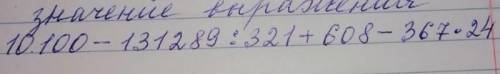 значение выражения
10.100-131289:321+608-367·24